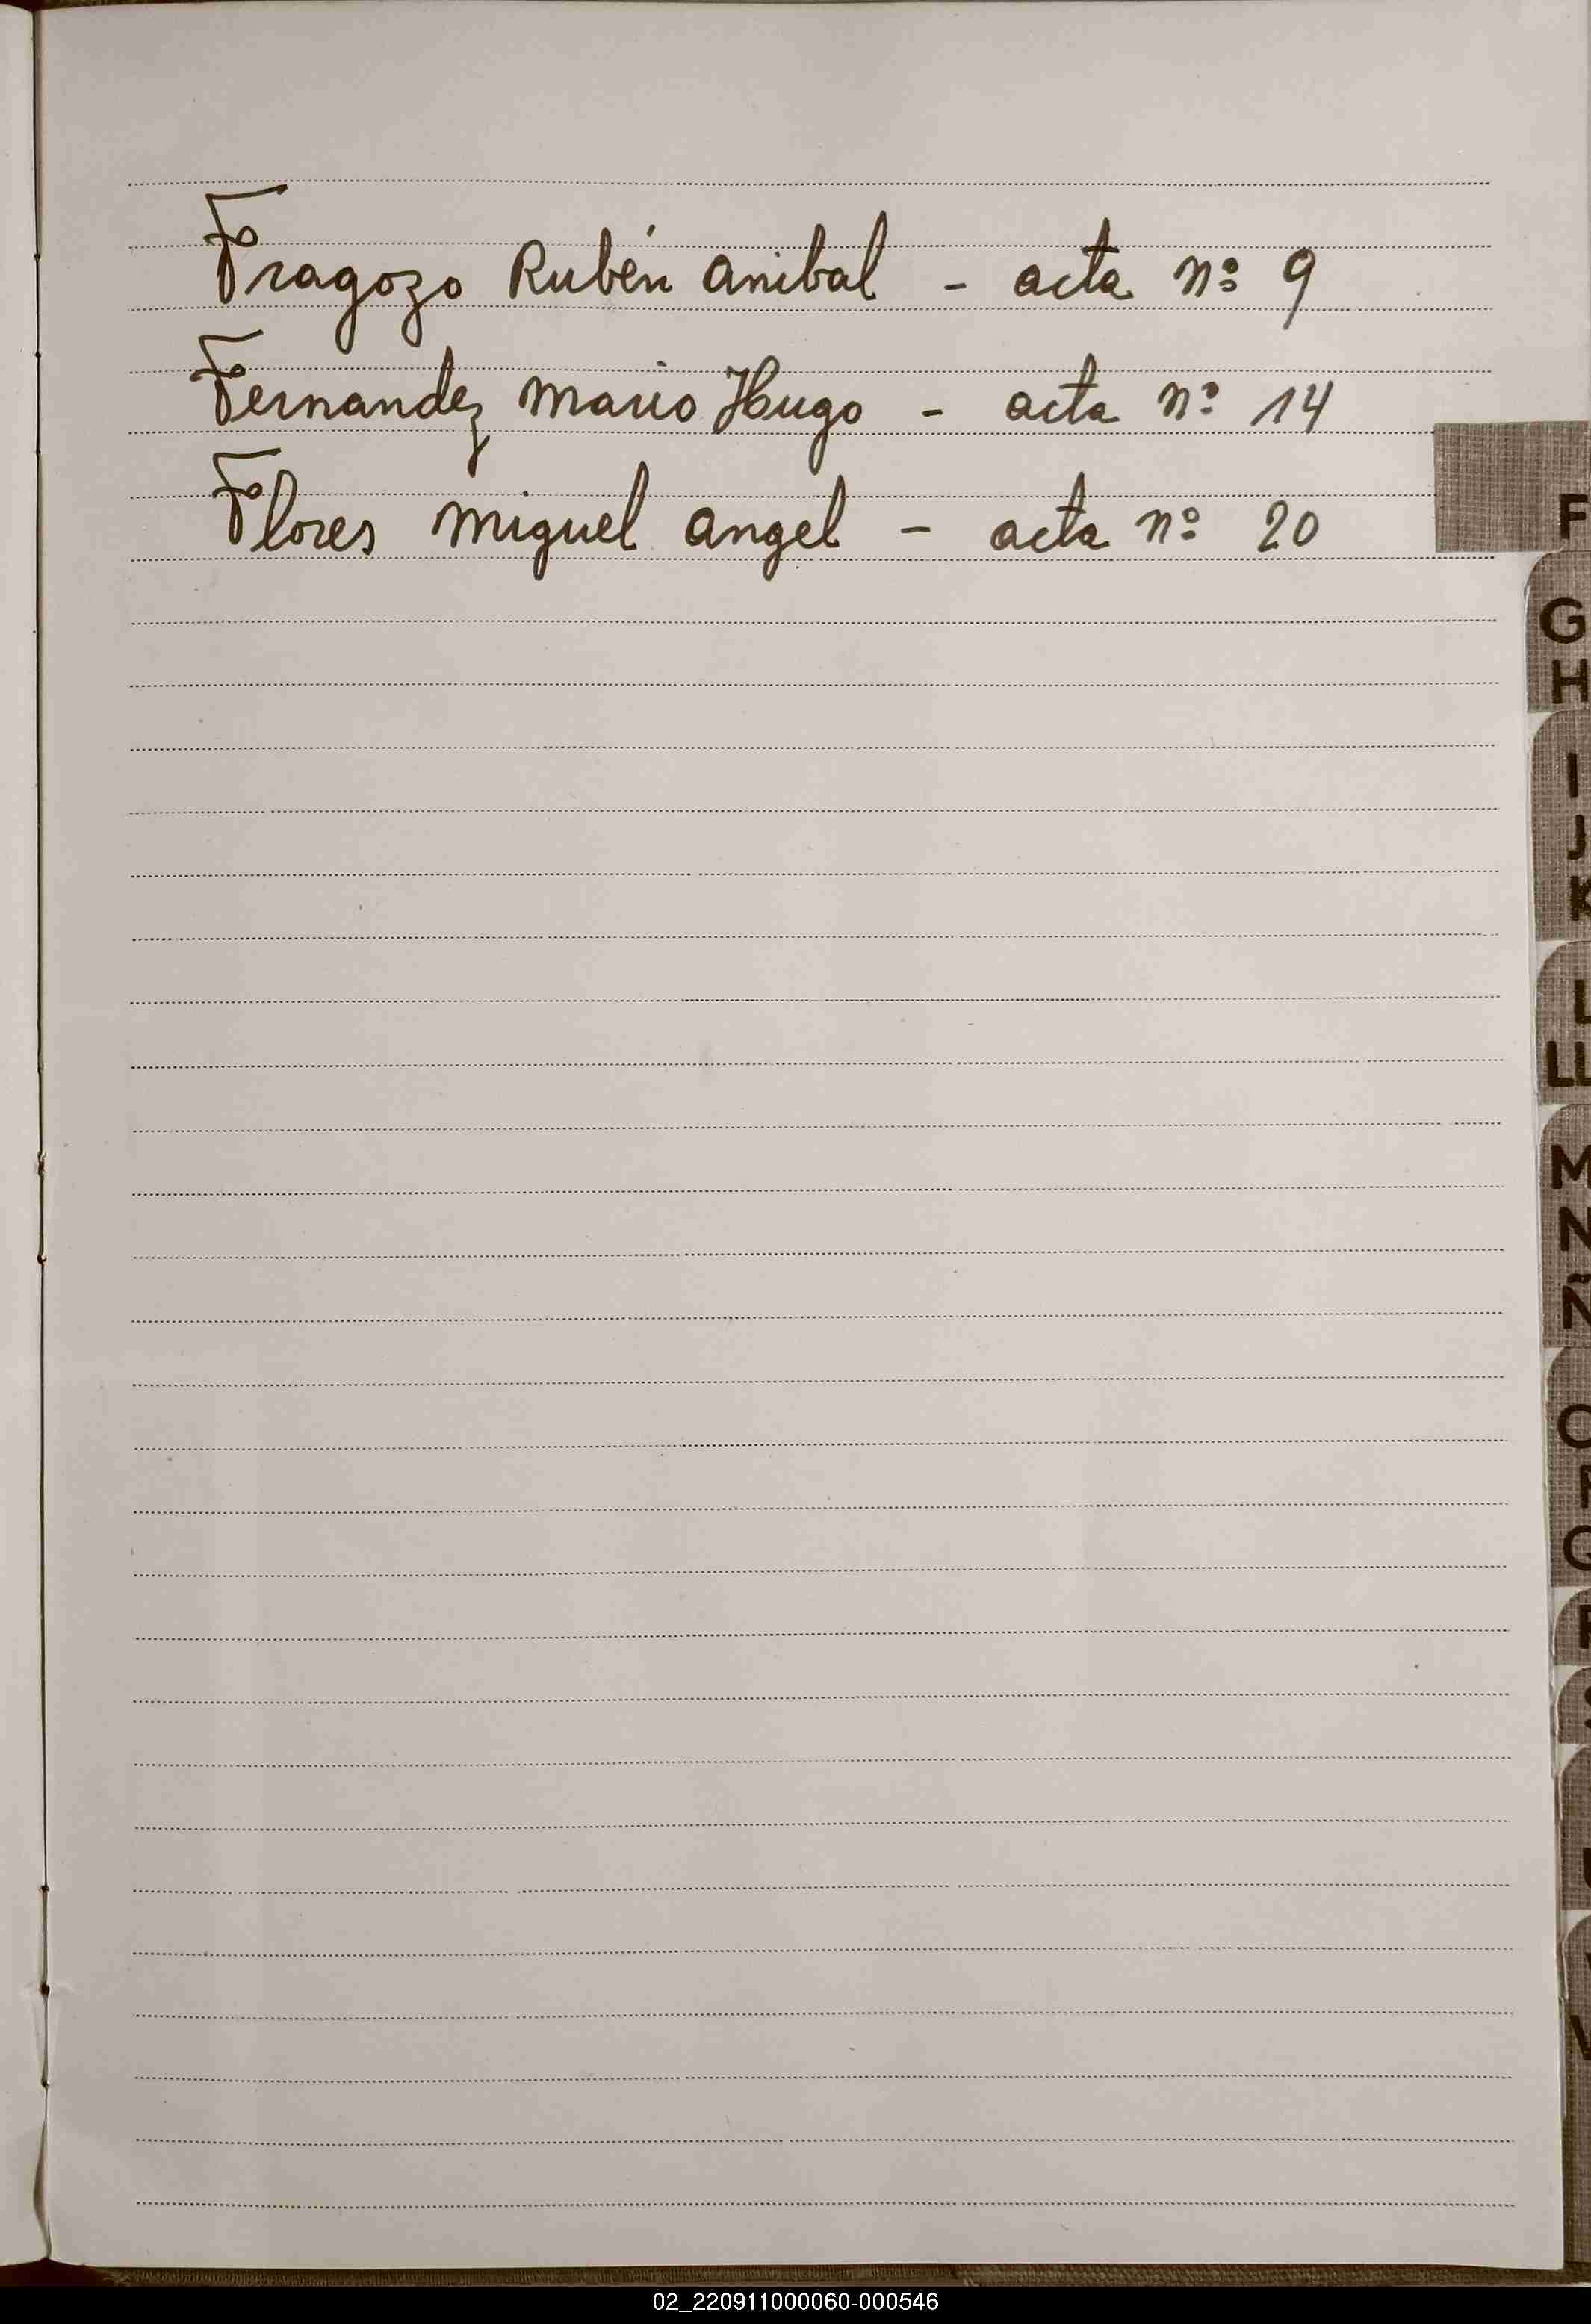 Fragozo Rubén anibal - acta nº 9
Fernandez mario Hugo - acta nº 14
Flores miguel angel - acta nº 20
F
G
H
I
J
K
L
LL
M
N
Ñ
O
P
Q
R
S
U
V
02_220911000060-000546